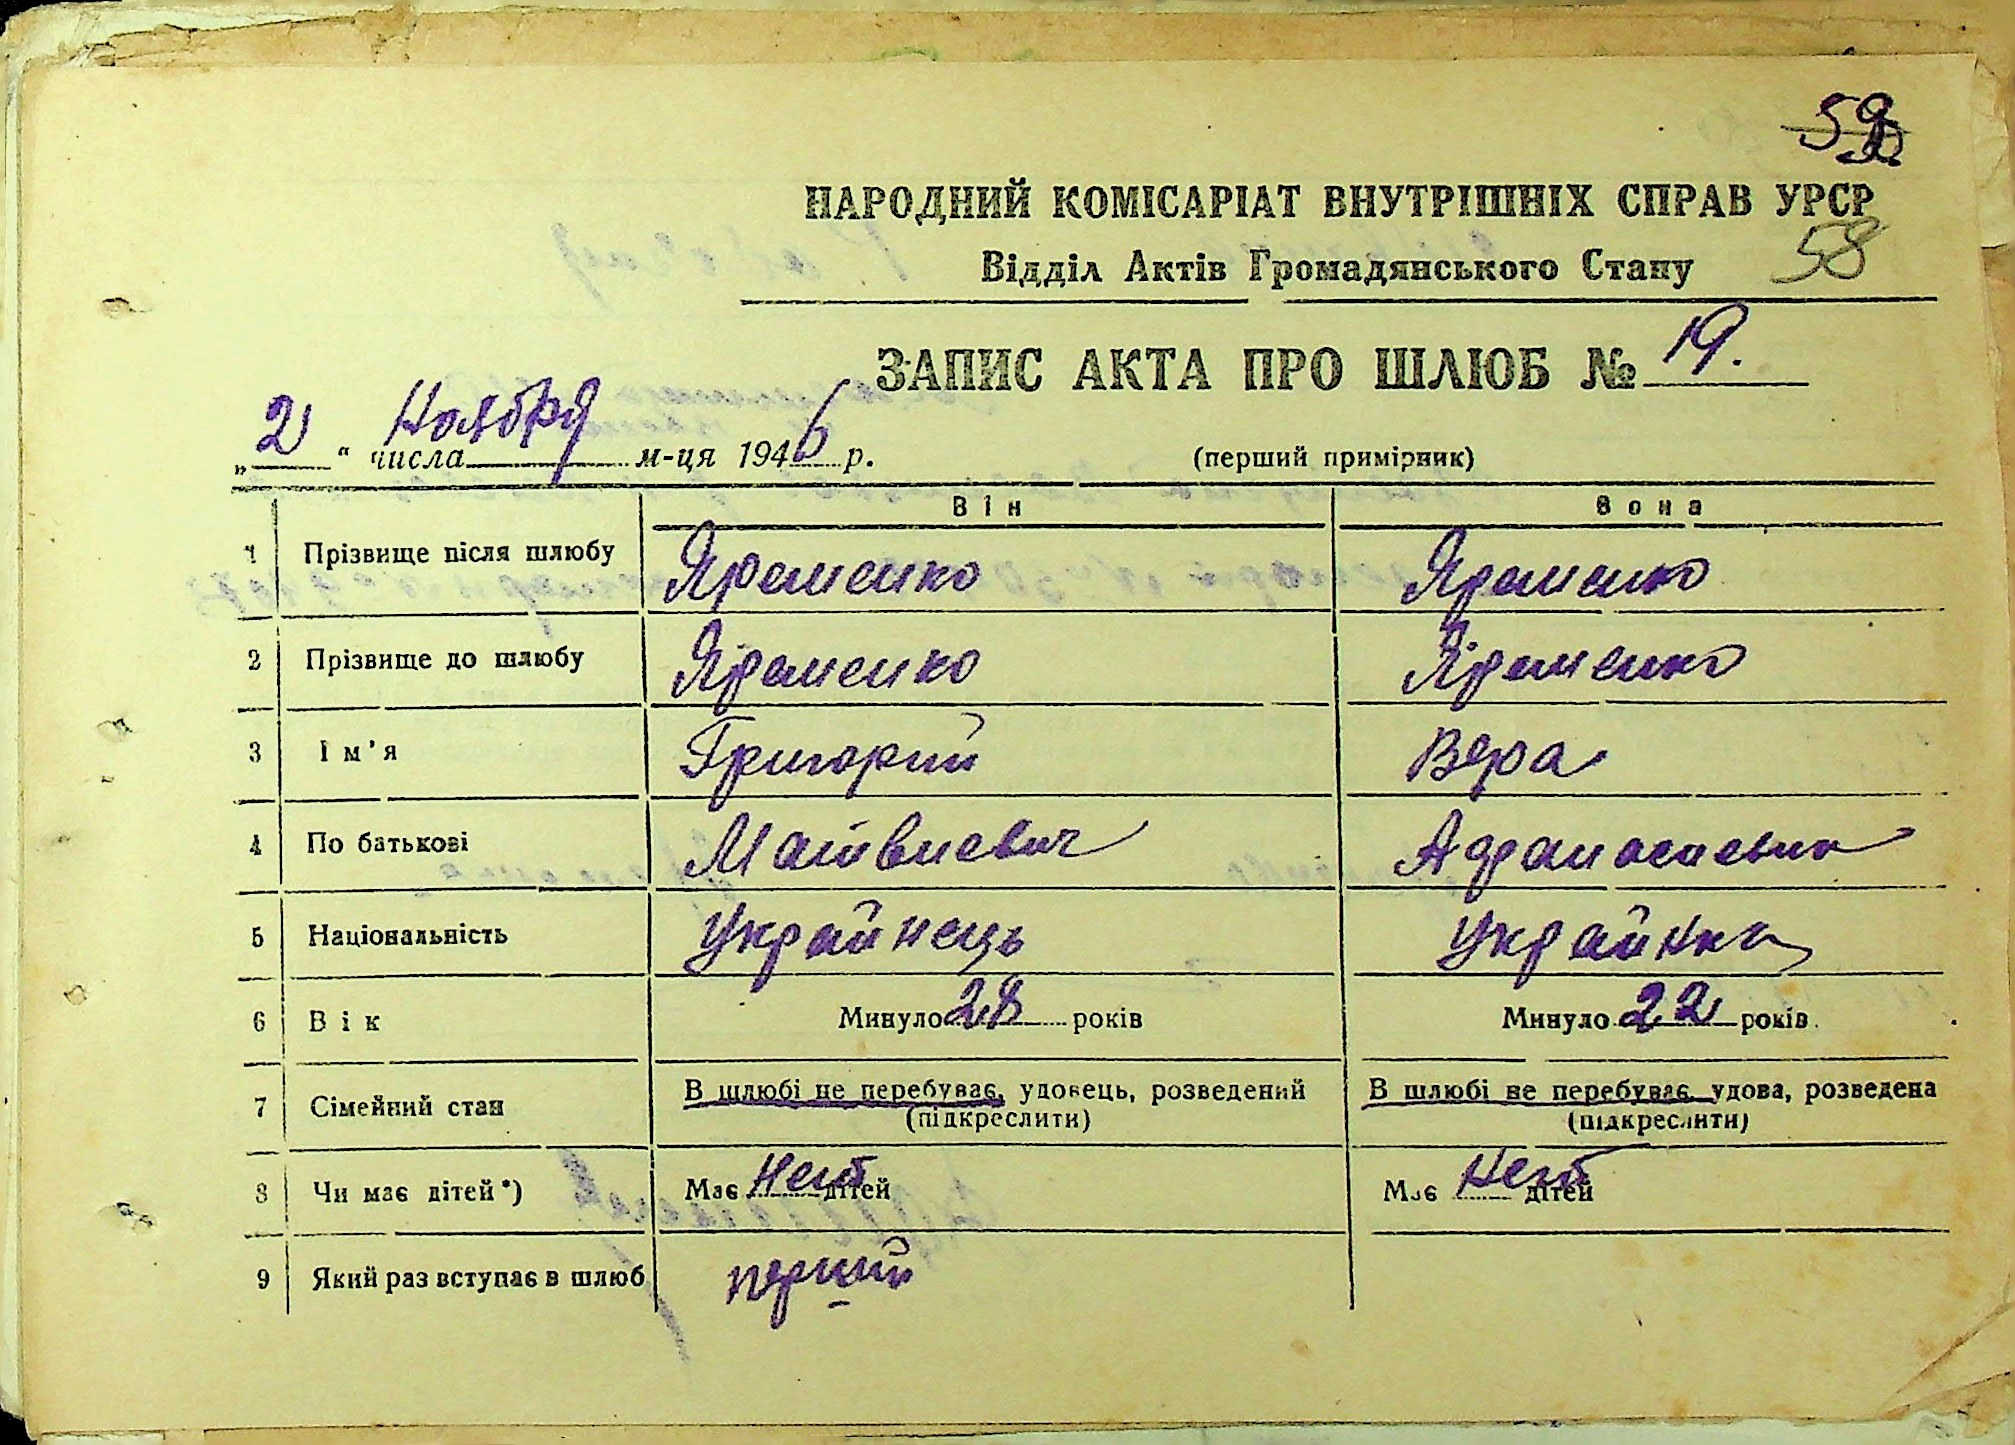 58
НАРОДНИЙ КОМІСАРІАТ ВНУТРІШНІХ СПРАВ УРСР
Відділ Актів Громадянського Стану
ЗАПИС АКТА ПРО ШЛЮБ № 19.
„2“ числа Ноября м-ця 1946 р. (перший примірник)
Він Вона
1 Прізвище після шлюбу Яременко Яременко
2 Прізвище до шлюбу Яременко Яременко
3 Ім’я Григорий Вера
4 По батькові Матвиевич
5 Національність Украйнець Украйнка
6 Вік Минуло 28 років Минуло 22 років
7 Сімейний стан В шлюбі не перебуває, удовець, розведений В шлюбі не перебуває, удова, розведена
(підкреслити) (підкреслити)
8 Чи має дітей*) Має Нет дітей Має Нет дітей
9 Який раз вступає в шлюб перший